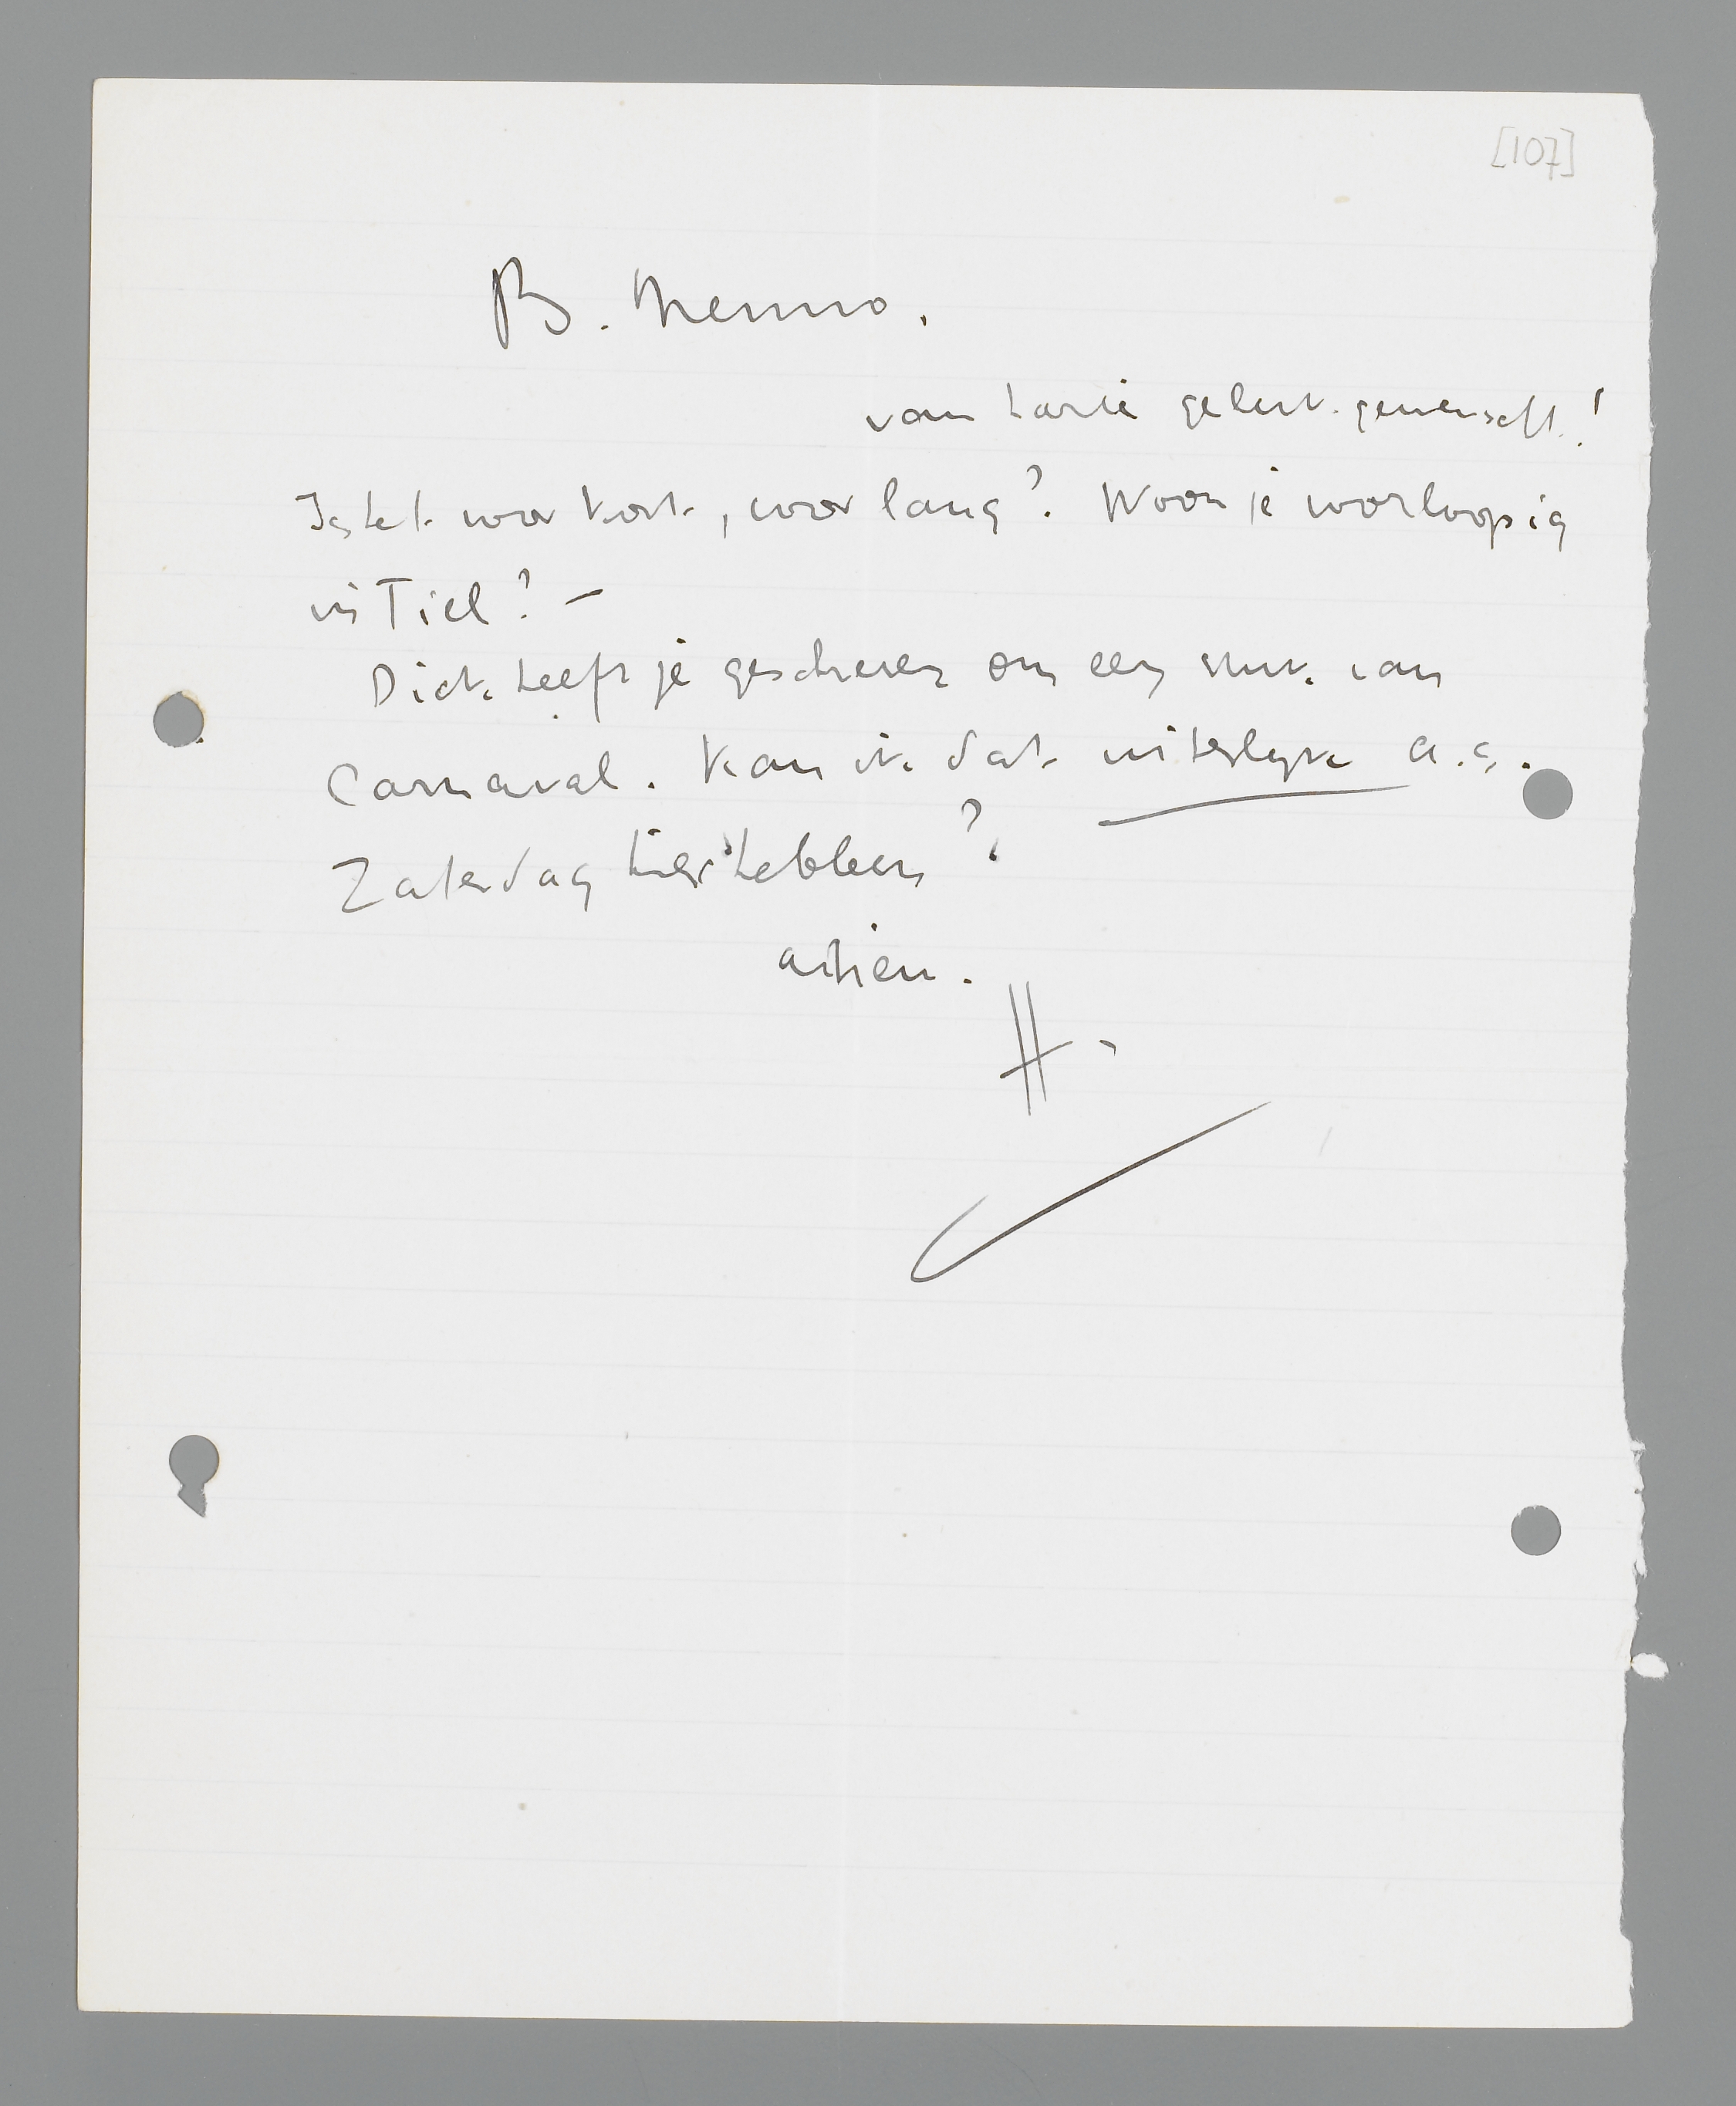 [107]
B. Menno.
van harte geluk gewenscht!
Is het voor kort, voor lang? Woon je voorloopig
in Tiel? –
Dick heeft je geschreven om een stuk van
Carnaval. Kan ik dat uiterlijk a.s.
Zaterdag hier hebben?
adieu.
H.